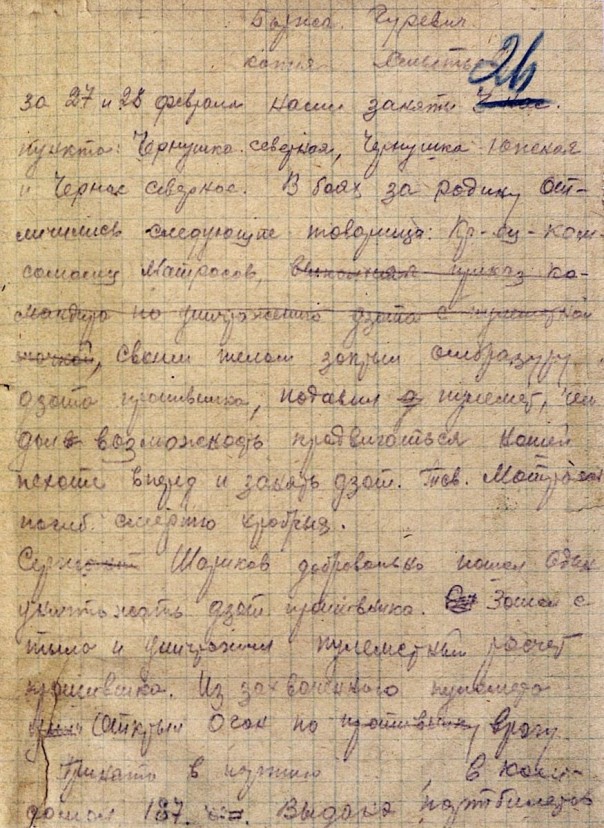 Гуревич
24
копия
за 27 и 28 февраля наши заняты
пункты: Чернушка северная, Чернушка южная
и Чернас северное. В боях за родину от-
личились следующие товарищи: Кр-ец - ком-
сомолец Матросов, выполняя приказ ко-
мандира по уничтожению дзота с пулеметной
точкой, своим телом закрыл амбразуру
дзота противника, подавил пулемет, чем
дал возможность продвигаться нашей
пехоте вперед и занять дзот. Тов. Матросов
погиб смертью храбрых.
Шариков добровольно пошел один
уничтожать дзот противника. Зашел с
тыла и уничтожил пулеметный расчет
противника. Из захваченного пулемета
открыл огон по противнику врагу
Принято в партию , в комсо-
187. Выдано партбилетов